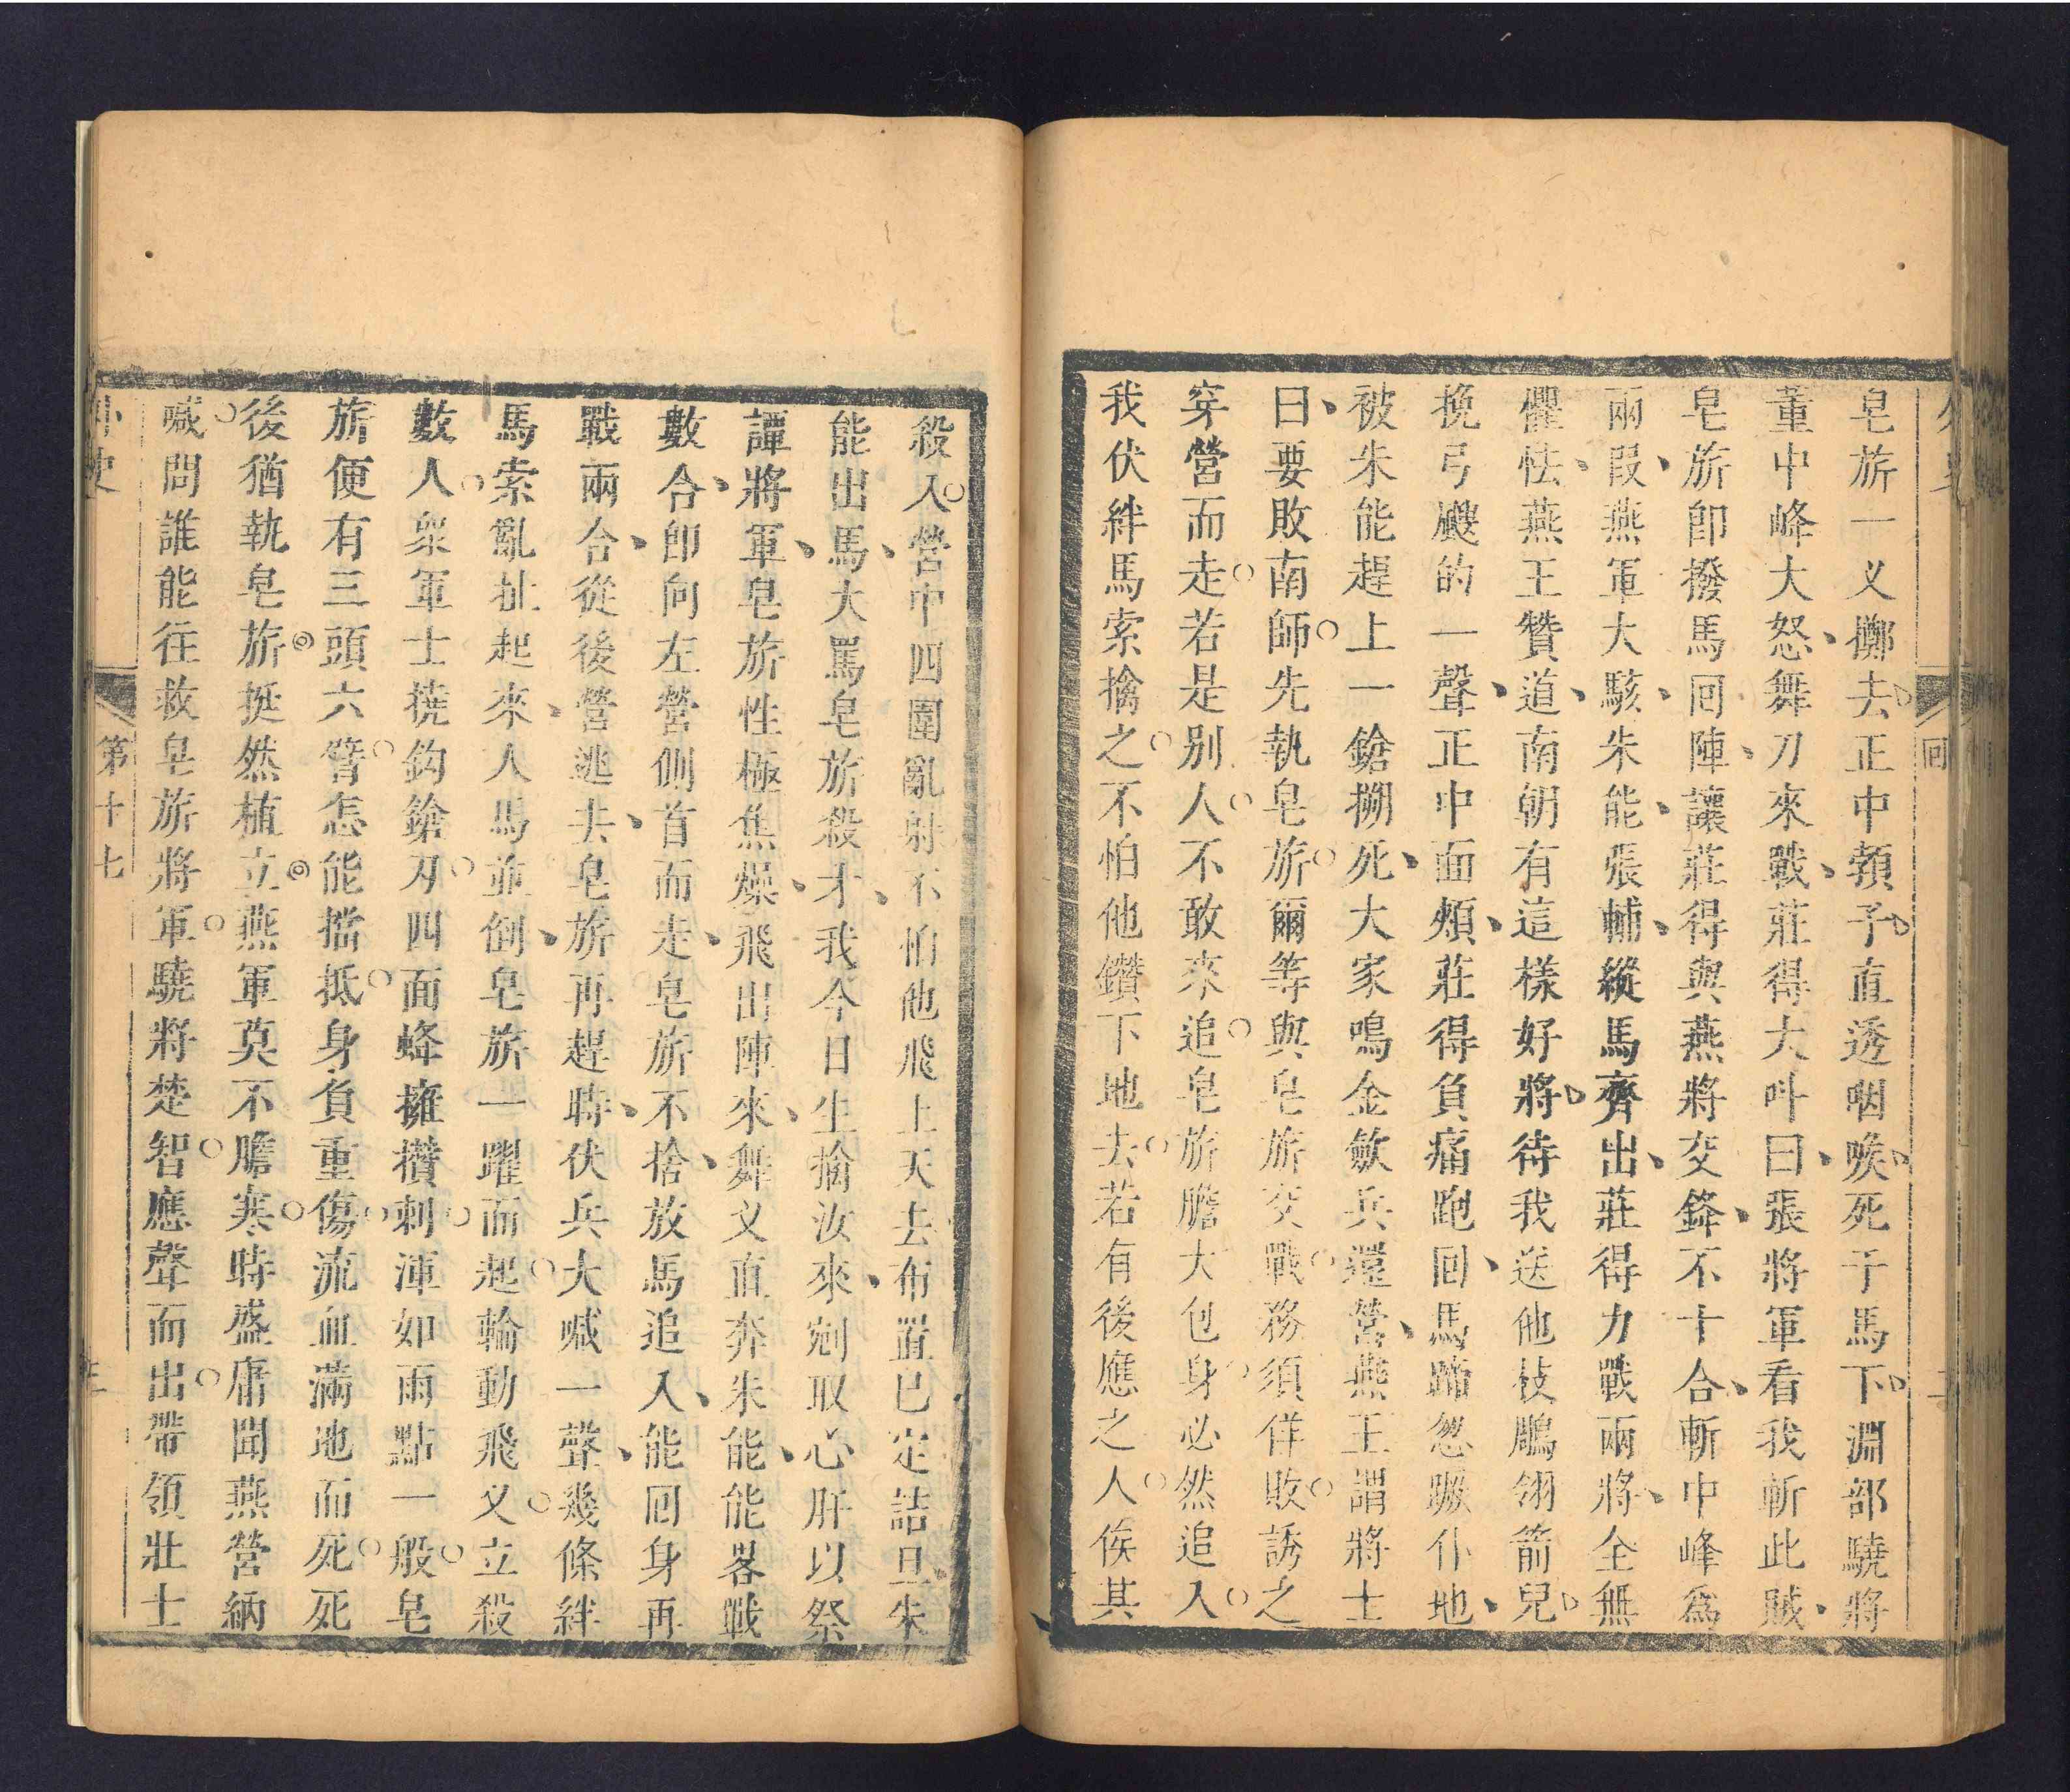 皂旂一义擲去正中頷子直透咽喉死于馬下淵部驍將
董中峰大怒舞刀來戰莊得大叫曰張將軍看我斬此賊
皂旂卽撥馬回陣讓莊得與燕將交鋒不十合斬中峰爲
兩叚燕軍大駭朱能張輔縱馬齊出莊得力戰兩將全無
懼怯燕王贊道南朝有這樣好將待我送他枝鵰翎箭兒
挽弓颼的一聲正中面頰莊得負痛跑回馬蹄忽蹶仆地
被朱能趕上一鎗搠死大家鳴金斂兵還營燕王謂將士
曰要敗南師先執皂旂爾等與皂旂交戰務須佯敗誘之
穿營而走若是別人不敢來追皂旂膽大包身必然追入
我伏絆馬索擒之不怕他鑽下地去若有後應之人俟其
殺入營中四圍亂射不怕他飛上天去布置已定詰旦朱
能出馬大罵皂旂殺才我今日生擒汝來剜取心肝以祭
譚將軍皂旂性極焦燥飛出陣來舞义直奔朱能能畧戰
數合卽向左營側首而走皂旂不捨放馬追入能回身再
戰兩合從後營逃去皂旂再趕時伏兵大喊一聲幾條絆
馬索亂扯起來人馬並倒皂旂一躍而起輪動飛义立殺
數人衆軍士撓鈎鎗刃四面蜂擁攢刺渾如雨點一般皂
旂便有三頭六臂怎能擋抵身負重傷流血滿地而死死
後猶執皂旂挺然植立燕軍莫不膽寒時盛庸聞燕營納
喊問誰能往救皂旂將軍驍將楚智應聲而出帶領壯士
外史
第十七